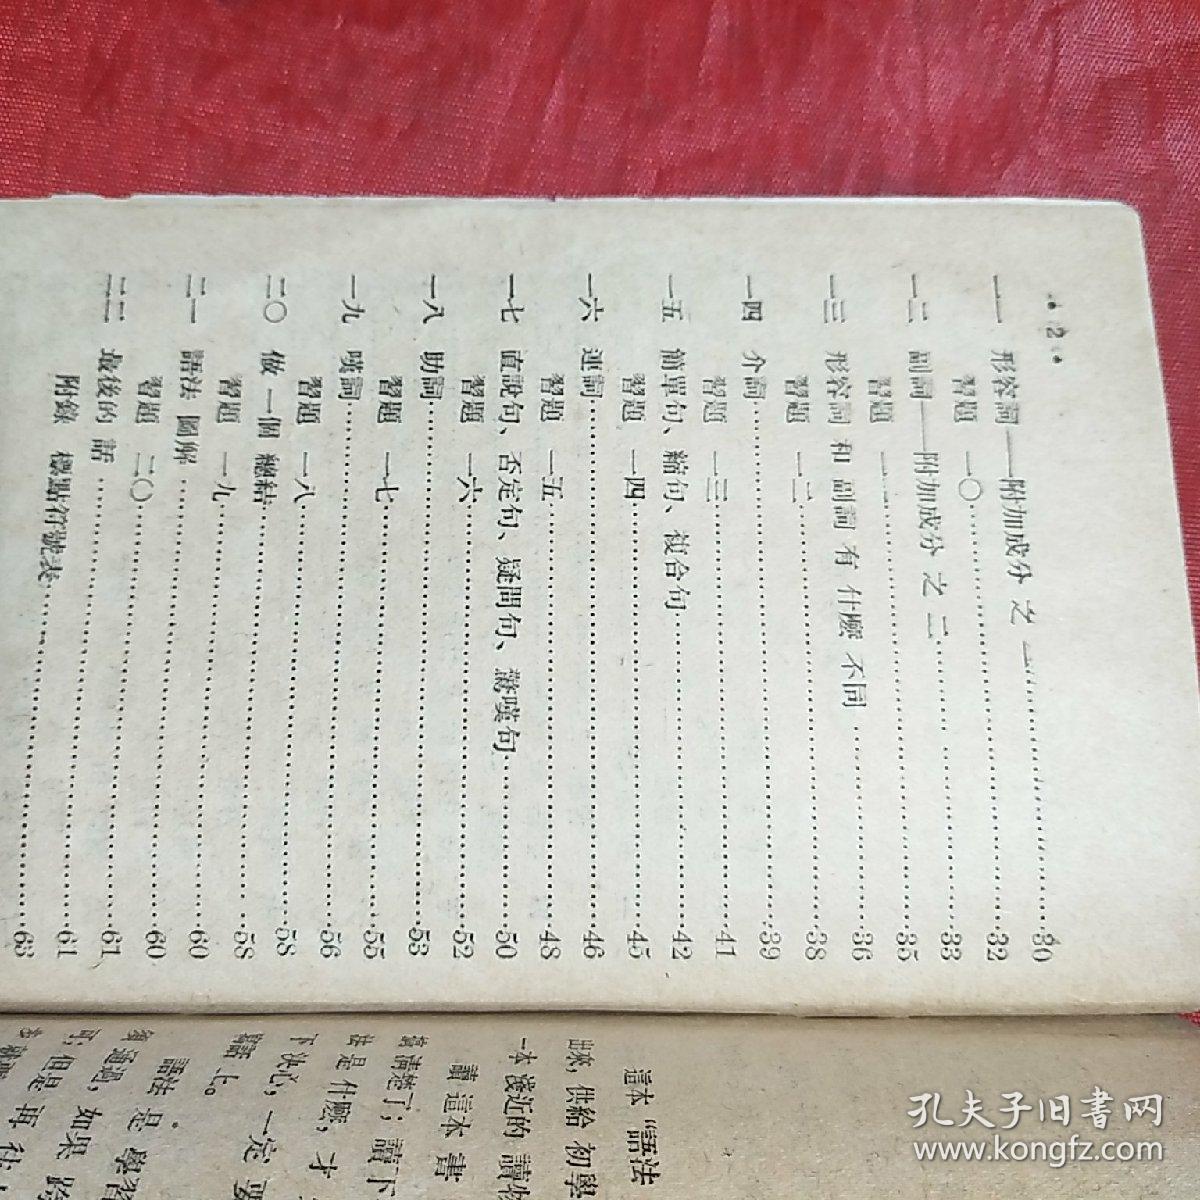 ·2·
一一 形容詞——附加成分 之 一……30
習題 一〇……32
一二 副詞——附加成分 之 二……33
習題 一一……35
一三 形容詞 和 副詞 有 什麽 不同……36
習題 一二……38
一四 介詞……39
習題 一三……41
一五 簡單句、縮句、複合句……42
習題 一四……45
一六 連詞……46
習題 一五……48
一七 直說句、否定句、疑問句、驚嘆句……50
習題 一六……52
一八 助詞……53
習題 一七……55
一九 嘆詞……56
習題 一八……58
二〇 做 一個 總結……58
習題 一九……60
二一 語法 圖解……60
習題 二〇……61
二二 最後的 話……61
附錄 標點符號表……63
這本 "語法
出來，供給 初學
一本 淺近的 讀物
讀 這本 書
清楚了；讀下
法 是 什麽，才
下決心，一定 要
上。
語法 是 學習
通過，如果
但是 再
孔夫子旧書网
www.kongfz.com